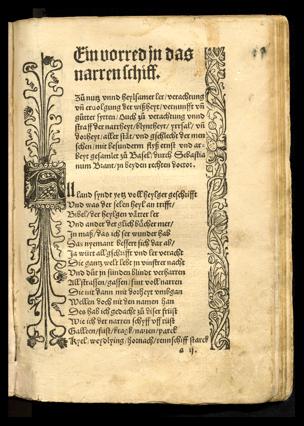 Ein vorred jn das
narren schiff.
Zů nutz vnnd heylsamer ler / verachtung
vñ eruolgung der wißheyt / vernunfft vñ
gůtter sytten / Ouch zů verachtung vnnd
straff der narrheyt / blyntheyt / yrrsal / vñ
dorheyt / aller ståt / vnd geschlecht der men
schen / mit besunderm flyß ernst vnd ar-
beyt gesamlet zů Basel / durch Sebastia
num Brant / jn beyden rechten doctor.
All land syndt yetz voll heylger geschrifft
Vnd was der selen heyl an trifft /
Bibel / der heylgen våtter ler
Vnd ander der glich bůcher mer /
Jn maß / das ich ser wunder hab
Das nyemant bessert sich dar ab /
Ja würt all gschrifft vnd ler veracht
Die gantz welt lebt in vinstrer nacht
Vnd důt in sünden blindt verharren
All strassen / gassen / sint voll narren
Die nüt dann mit dorheit vmbgan
Wellen doch nit den namen han
Des hab ich gedacht zů diser früst
Wie ich der narren schyff vff rüst
Galleen / füst / kragk / nauen / parck
Kyel / weydling / hornach / rennschiff starck
a ij.